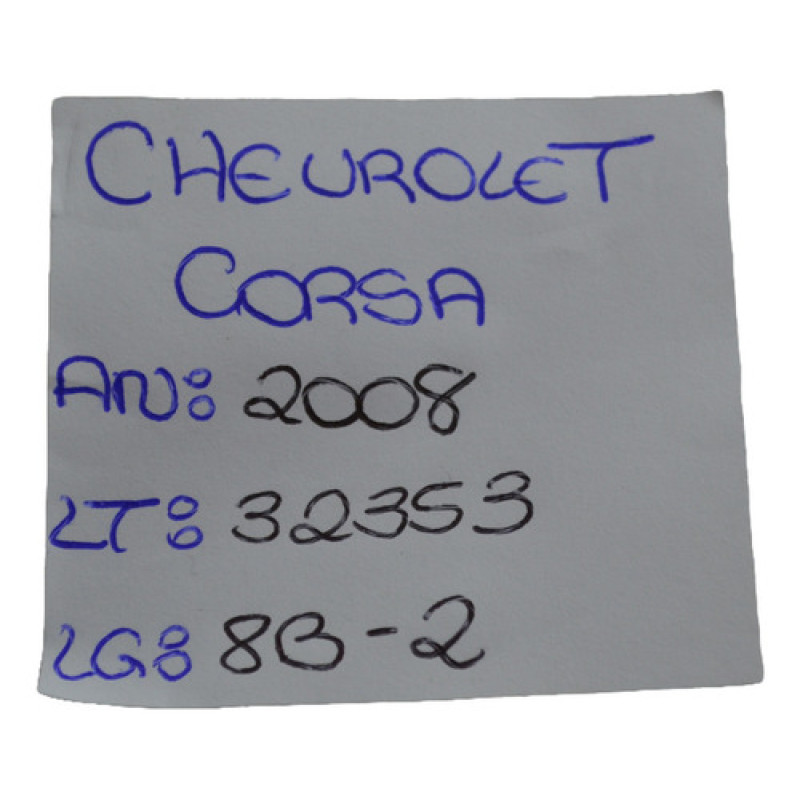 CHEVROLET
CORSA
AN: 2008
LT: 32353
LG: 8B-2